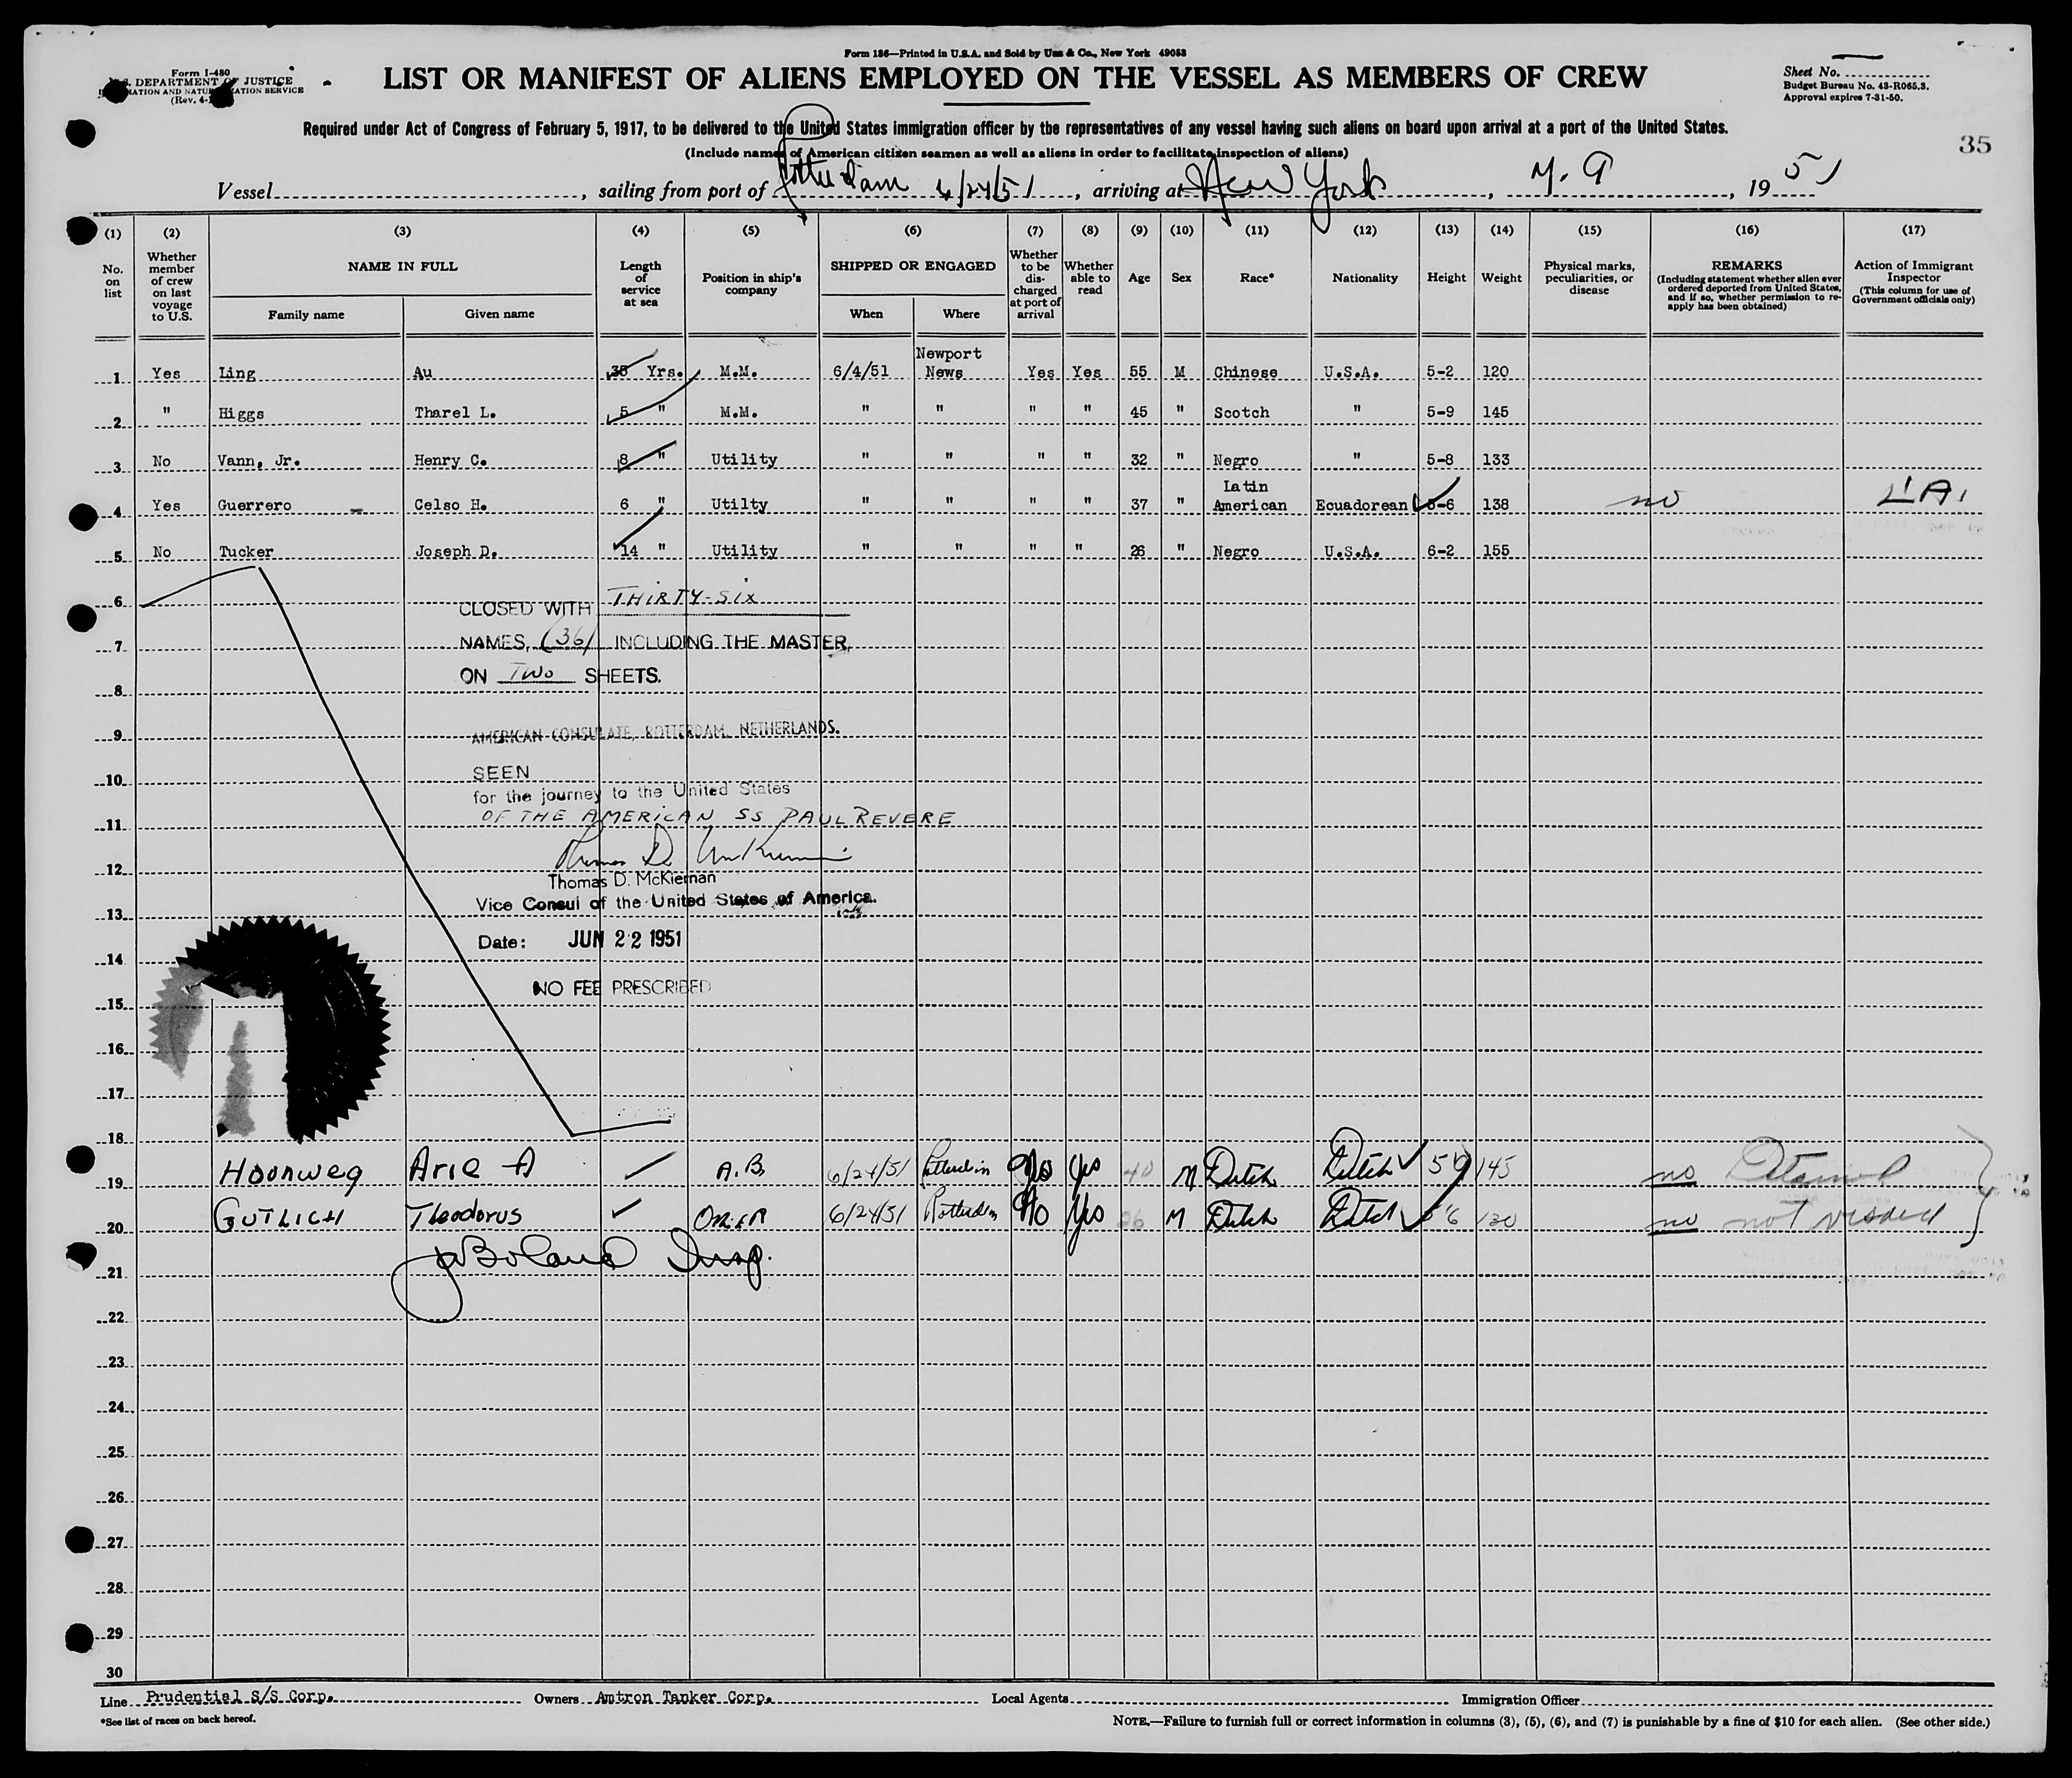 Form 186—Printed in U.S.A. and Sold by Unz & Co., New York 49053
Form I-480
U.S. DEPARTMENT OF JUSTICE
IMMIGRATION AND NATURALIZATION SERVICE
(Rev. 4-
LIST OR MANIFEST OF ALIENS EMPLOYED ON THE VESSEL AS MEMBERS OF CREW
Sheet No.
Budget Bureau No. 43-R065.3.
Approval expires 7-31-50.
Required under Act of Congress of February 5, 1917, to be delivered to the United States immigration officer by the representatives of any vessel having such aliens on board upon arrival at a port of the United States.
(Include names of American citizen seamen as well as aliens in order to facilitate inspection of aliens)
35
Vessel , sailing from port of Rotterdam 6/24/51 , arriving at New York , N.Y , 19 51
(1) (2) (3) (4) (5) (6) (7) (8) (9) (10) (11) (12) (13) (14) (15) (16) (17)
No. on list
Whether member of crew on last voyage to U.S.
NAME IN FULL
Family name Given name
Length of service at sea
Position in ship's company
SHIPPED OR ENGAGED
When Where
Whether to be discharged at port of arrival
Whether able to read
Age Sex Race* Nationality Height Weight
Physical marks, peculiarities, or disease
REMARKS
(Including statement whether alien ever ordered deported from United States, and if so, whether permission to re-apply has been obtained)
Action of Immigrant Inspector
(This column for use of Government officials only)
1 Yes Ling Au 35 Yrs. M.M. 6/4/51 Newport News Yes Yes 55 M Chinese U.S.A. 5-2 120
2 " Higgs Tharel L. 5 " M.M. " " " " 45 " Scotch " 5-9 145
3 No Vann, Jr. Henry C. 8 " Utility " " " " 32 " Negro " 5-8 133
4 Yes Guerrero - Celso H. 6 " Utilty " " " " 37 " Latin American Ecuadorean 5-6 138 no
5 No Tucker Joseph D. 14 " Utility " " " " 26 " Negro U.S.A. 6-2 155
6
CLOSED WITH THIRTY-SIX
7
NAMES, (36) INCLUDING THE MASTER,
ON TWO SHEETS.
8
9
AMERICAN CONSULATE, ROTTERDAM, NETHERLANDS.
SEEN
10
for the journey to the United States
11
OF THE AMERICAN SS PAUL REVERE
12
Thomas D. McKiernan
Vice Consul of the United States of America.
13
Date: JUN 22 1951
14
NO FEE PRESCRIBED
15
16
17
18
19 Hoonweg Arie A A.B. 6/24/51 Rotterdam No Yes 40 M Dutch Dutch 5 9 145 no Detained
20 GUTLICH Theodorus OILER 6/24/51 Rotterdam No Yes 26 M Dutch Dutch 5 6 130 no not visaed
21 Boland Insp.
22
23
24
25
26
27
28
29
30
Line Prudential S/S Corp. Owners Amtron Tanker Corp. Local Agents Immigration Officer
*See list of races on back hereof.
NOTE.—Failure to furnish full or correct information in columns (3), (5), (6), and (7) is punishable by a fine of $10 for each alien. (See other side.)